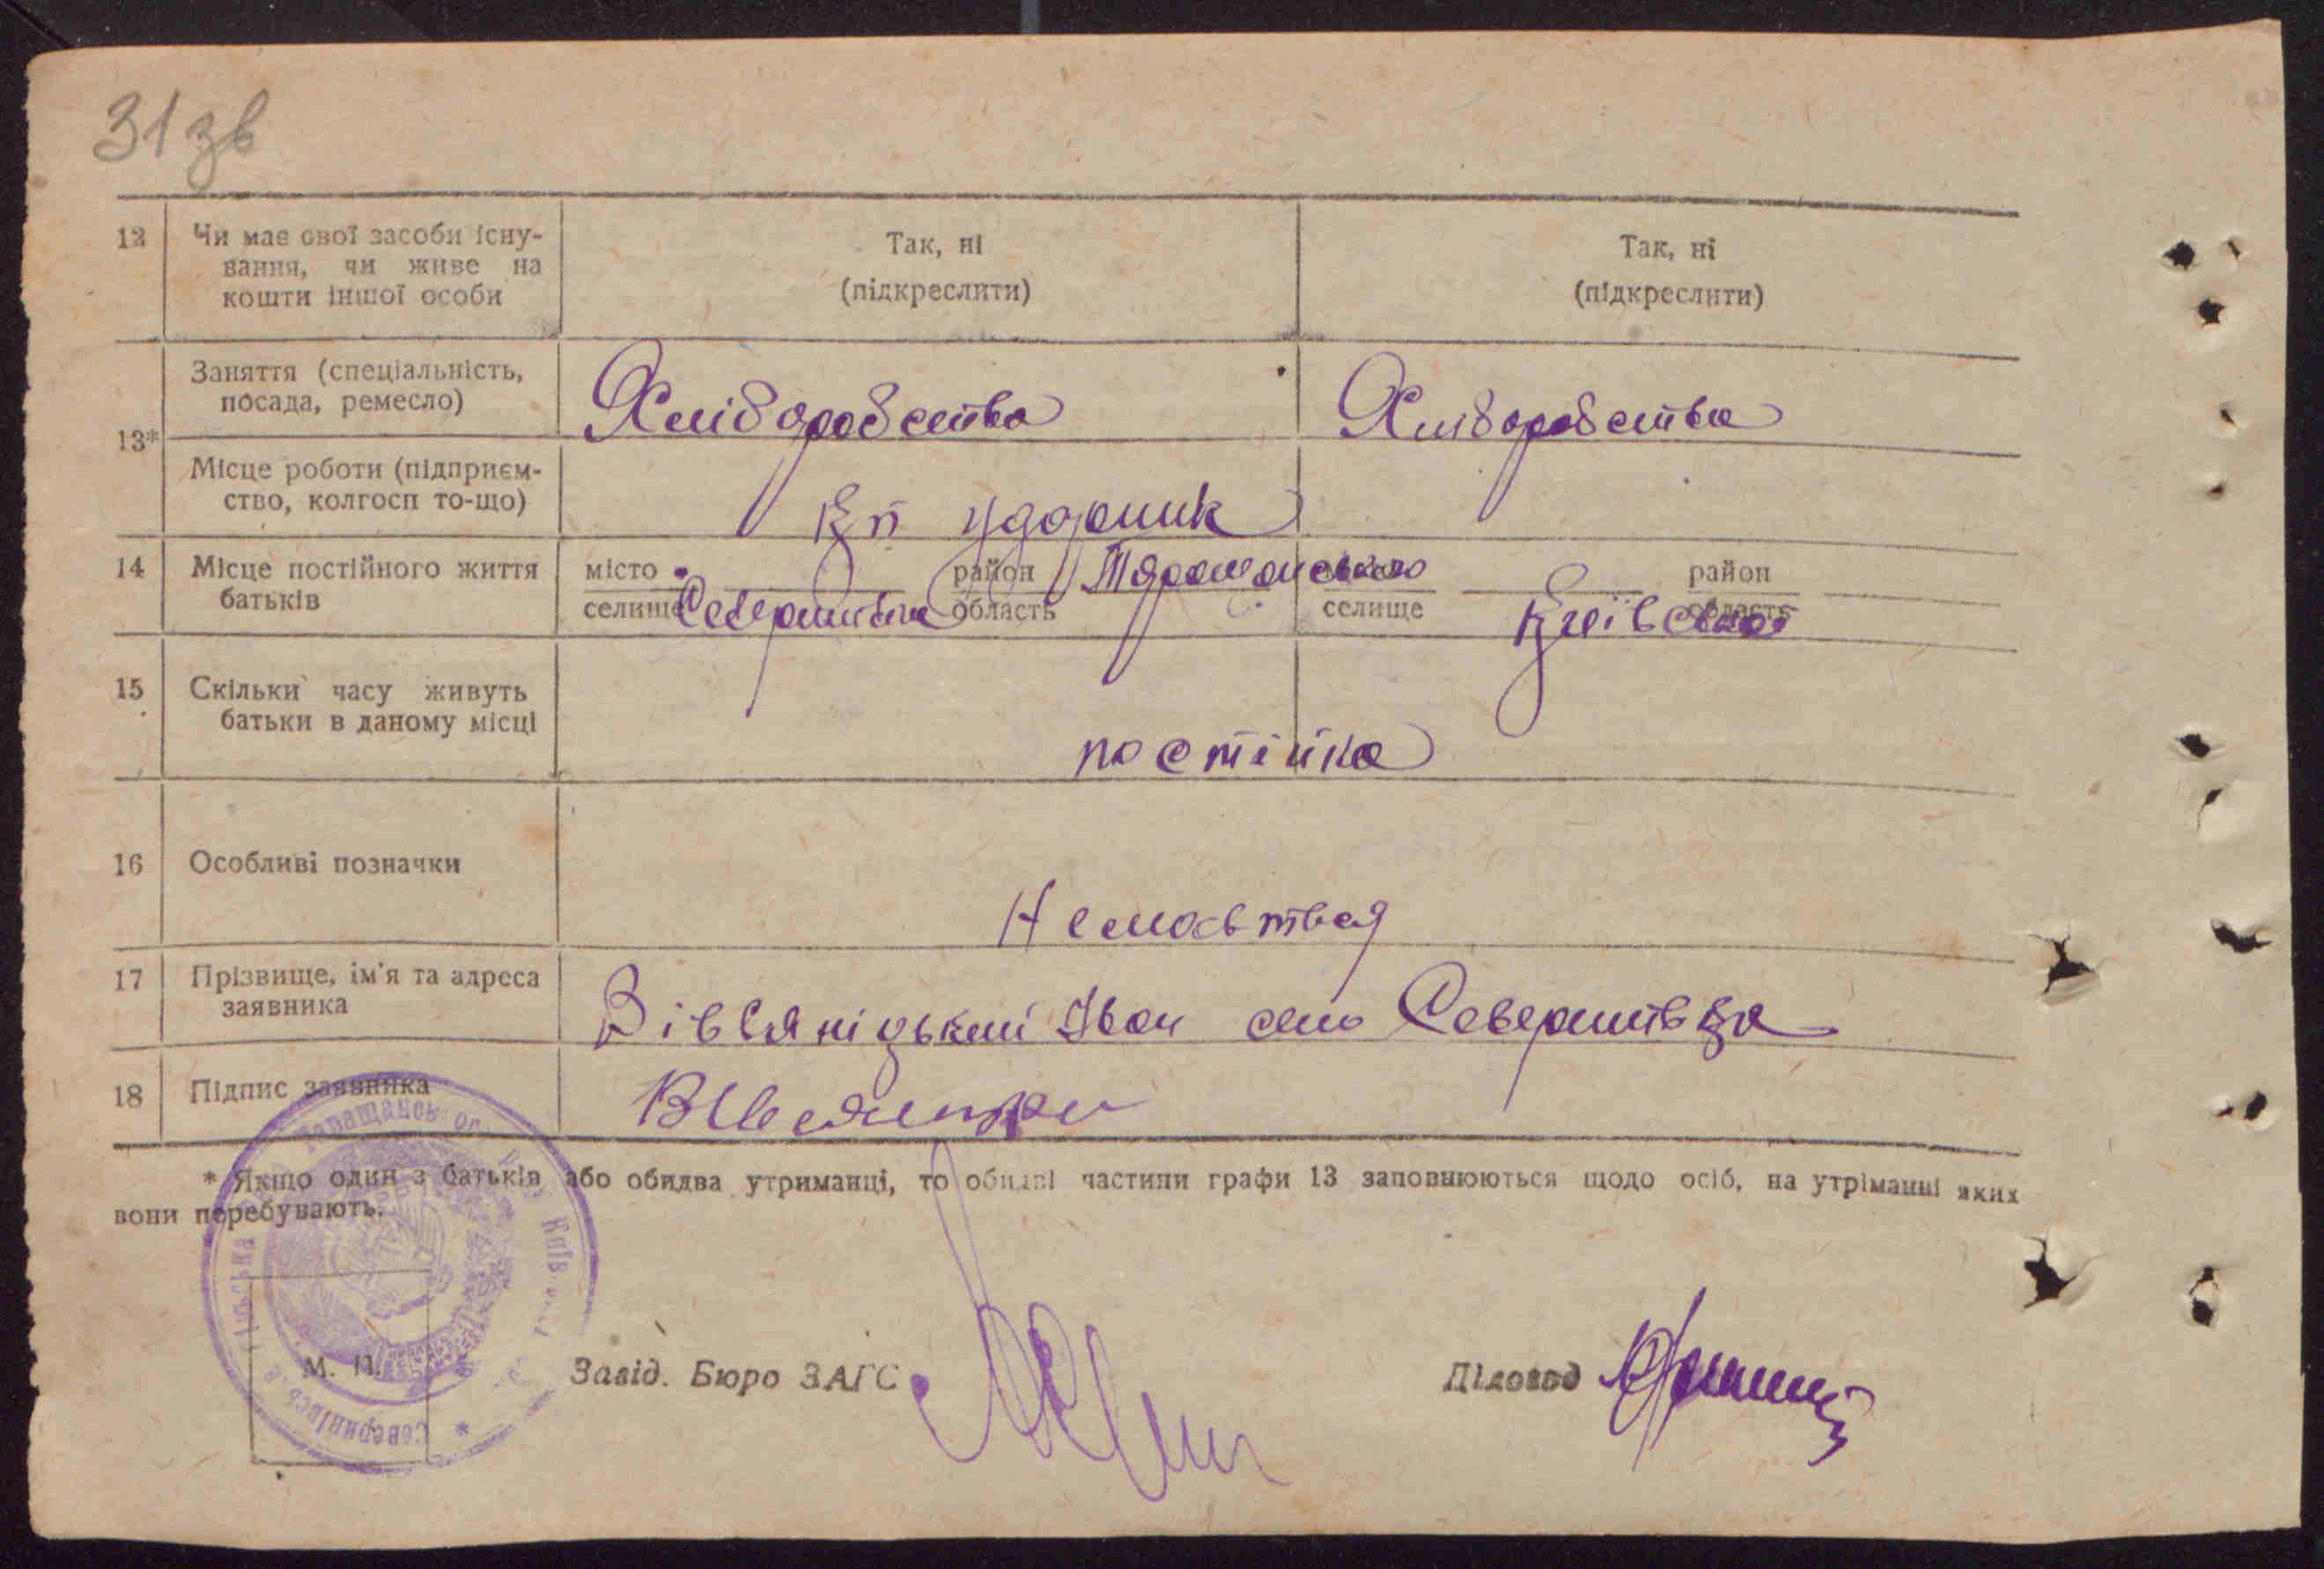 31 зв
12 Чи має свої засоби існу- Так, ні Так, ні
вання, чи живе на (підкреслити) (підкреслити)
кошти іншої особи
13* Заняття (спеціальність, Хліборобство Хліборобство
посада, ремесло)
Місце роботи (підприєм- Кп ударник
ство, колгосп то-що)
14 Місце постійного життя місто район Таращанського район
батьків селище Северинівка область селище Київської область
15 Скільки часу живуть
батьки в даному місці
постійно
16 Особливі позначки
17 Прізвище, ім'я та адреса Вівсяніцький Іван село Северинівка
заявника
18 Підпис заявника
* Якщо один з батьків або обидва утриманці, то обидві частини графи 13 заповнюються щодо осіб, на утріманні яких
вони перебувають.
М. П. Завід. Бюро ЗАГС Діловод